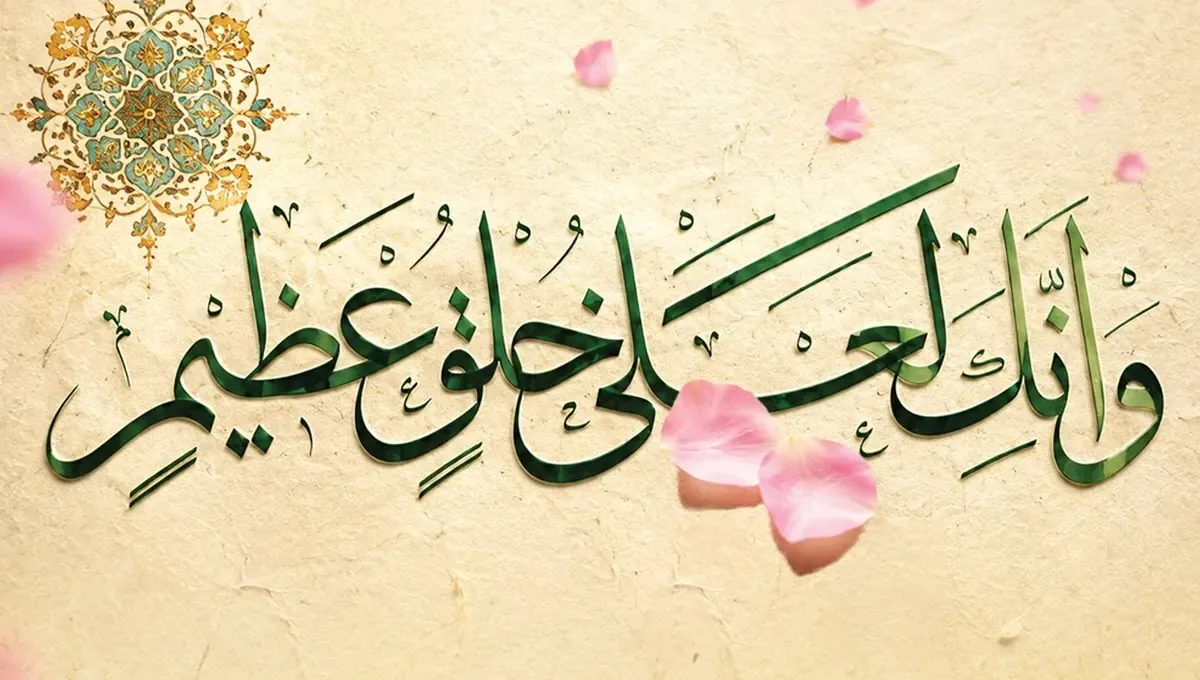 وَاِنَّكَ لَعَلٰى خُلُقٍ عَظِيْمٍ